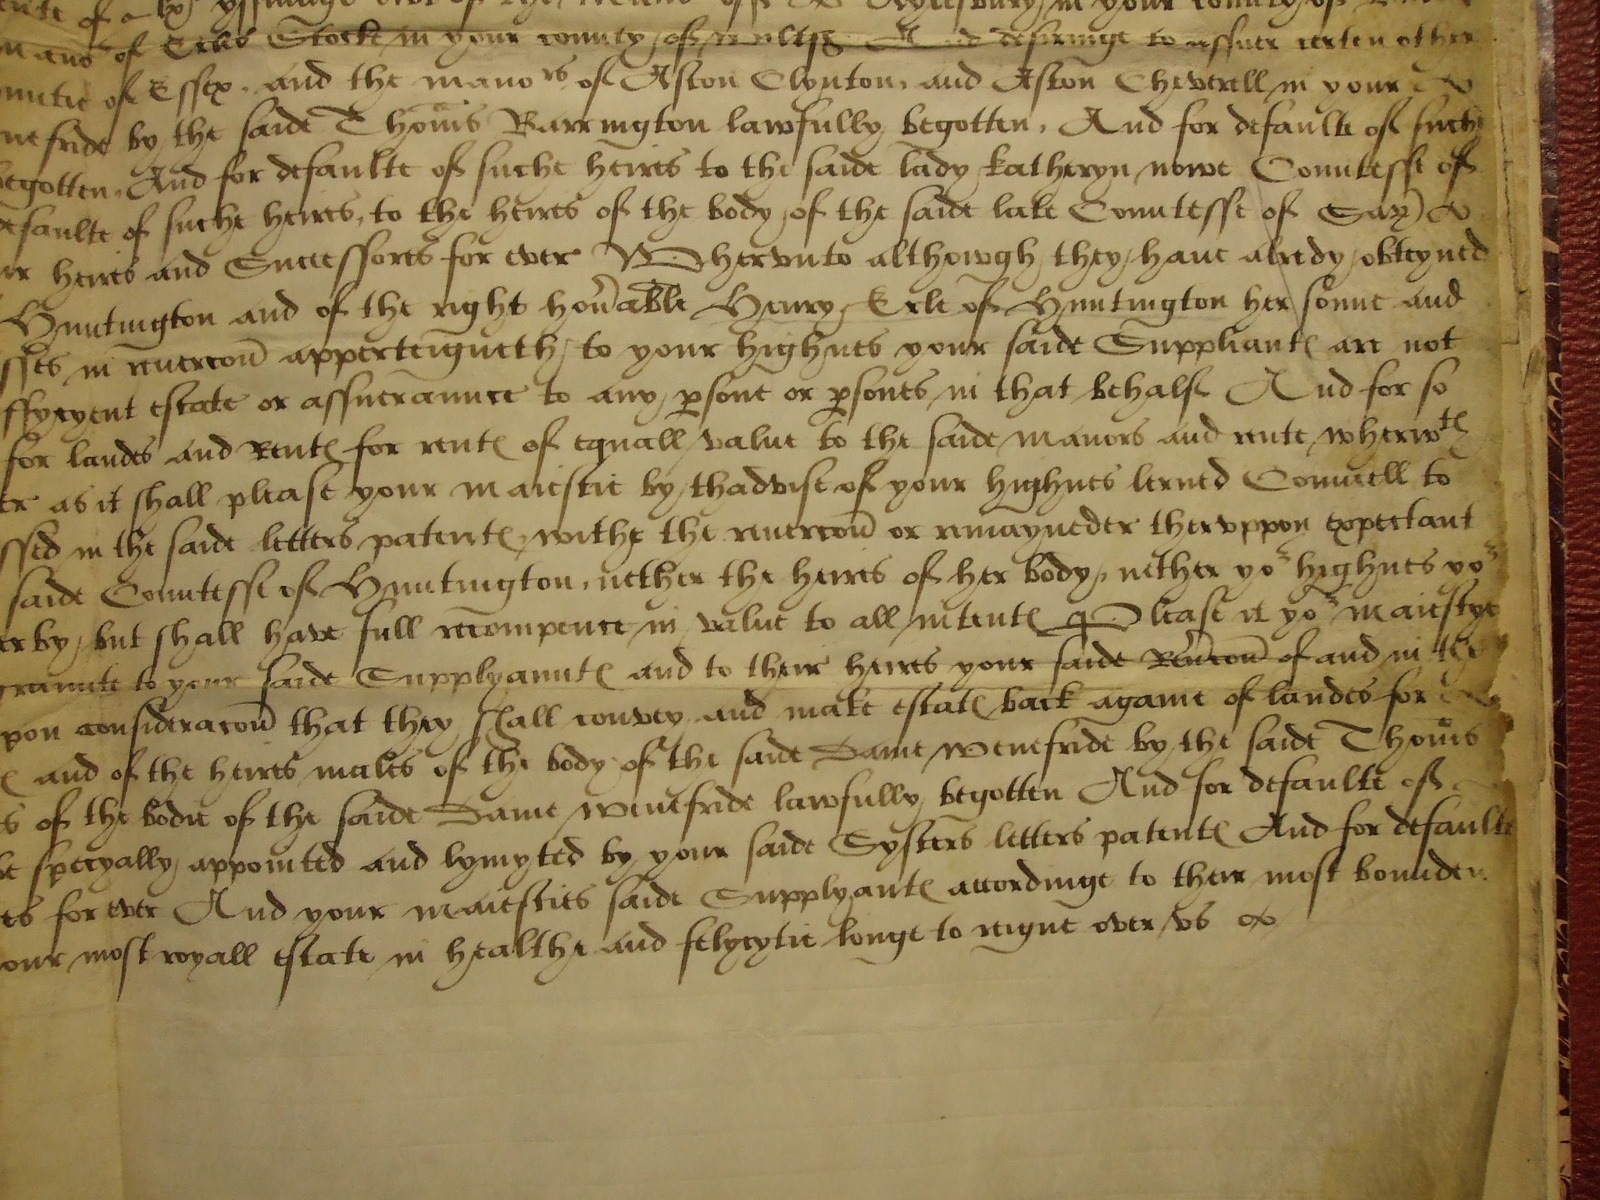 yssuinge out of the Mano of Aylesbury in your county of
mano of Erles Stocke in your county of Wiltes And desiringe to assuer certen other
ountie of Essex, and the manors of Aston Clynton, and Aston Cheverell in your Co
nefride by the saide Thomas Barrington lawfully begotten, And for defaulte of suche
begotten, And for defaulte of suche heires to the saide lady Katheryn nowe Countesse of
efaulte of suche heires, to the heires of the body of the saide late Countesse of Sar) &
ir heires and Successores for ever Whervnto althowgh they have alredy obteyned
Huntington and of the right hon'able Henry Erle of Huntington her sonne and
sses in reuercon apperteigneth to your highnes your saide Suppliantes are not
ffycyent estate or assueraunce to any psone or psones in that behalf And for so
for landes and Rentes for rentes of equall value to the saide manors and rente wherwth
er as it shall please your maiestie by thadvise of your highnes lerned Counsell to
ssed in the saide letters patentes, withe the reuercon or remayneder thervppon expectant
saide Countesse of Huntington, nether the heires of her body, nether yor highnes yor
erby, but shall have full recompence in value to all intentes Please it yor maiestye
graunte to your saide Supplyauntes and to their heires your saide Reuercon of and in the
pon consideracon that they shall convey and make estates back againe of landes for
and of the heires males of the body of the saide Dame Wenefride by the saide Thomas
s of the bodie of the saide Dame Wenefride lawfully begotten And for defaulte of
be specyally appointed and lymyted by your saide Systers letters patentes And for defaulte
es for ever And your maiesties saide Supplyantes accordinge to their most bounden
our most royall estate in healthe and felycytie longe to reigne over vs &